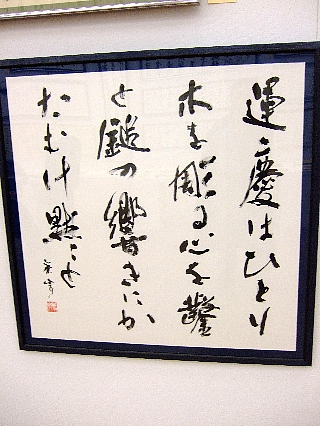 運慶はひとり
木を彫る心を鑿
と鎚の響きにか
たむけ黙々と